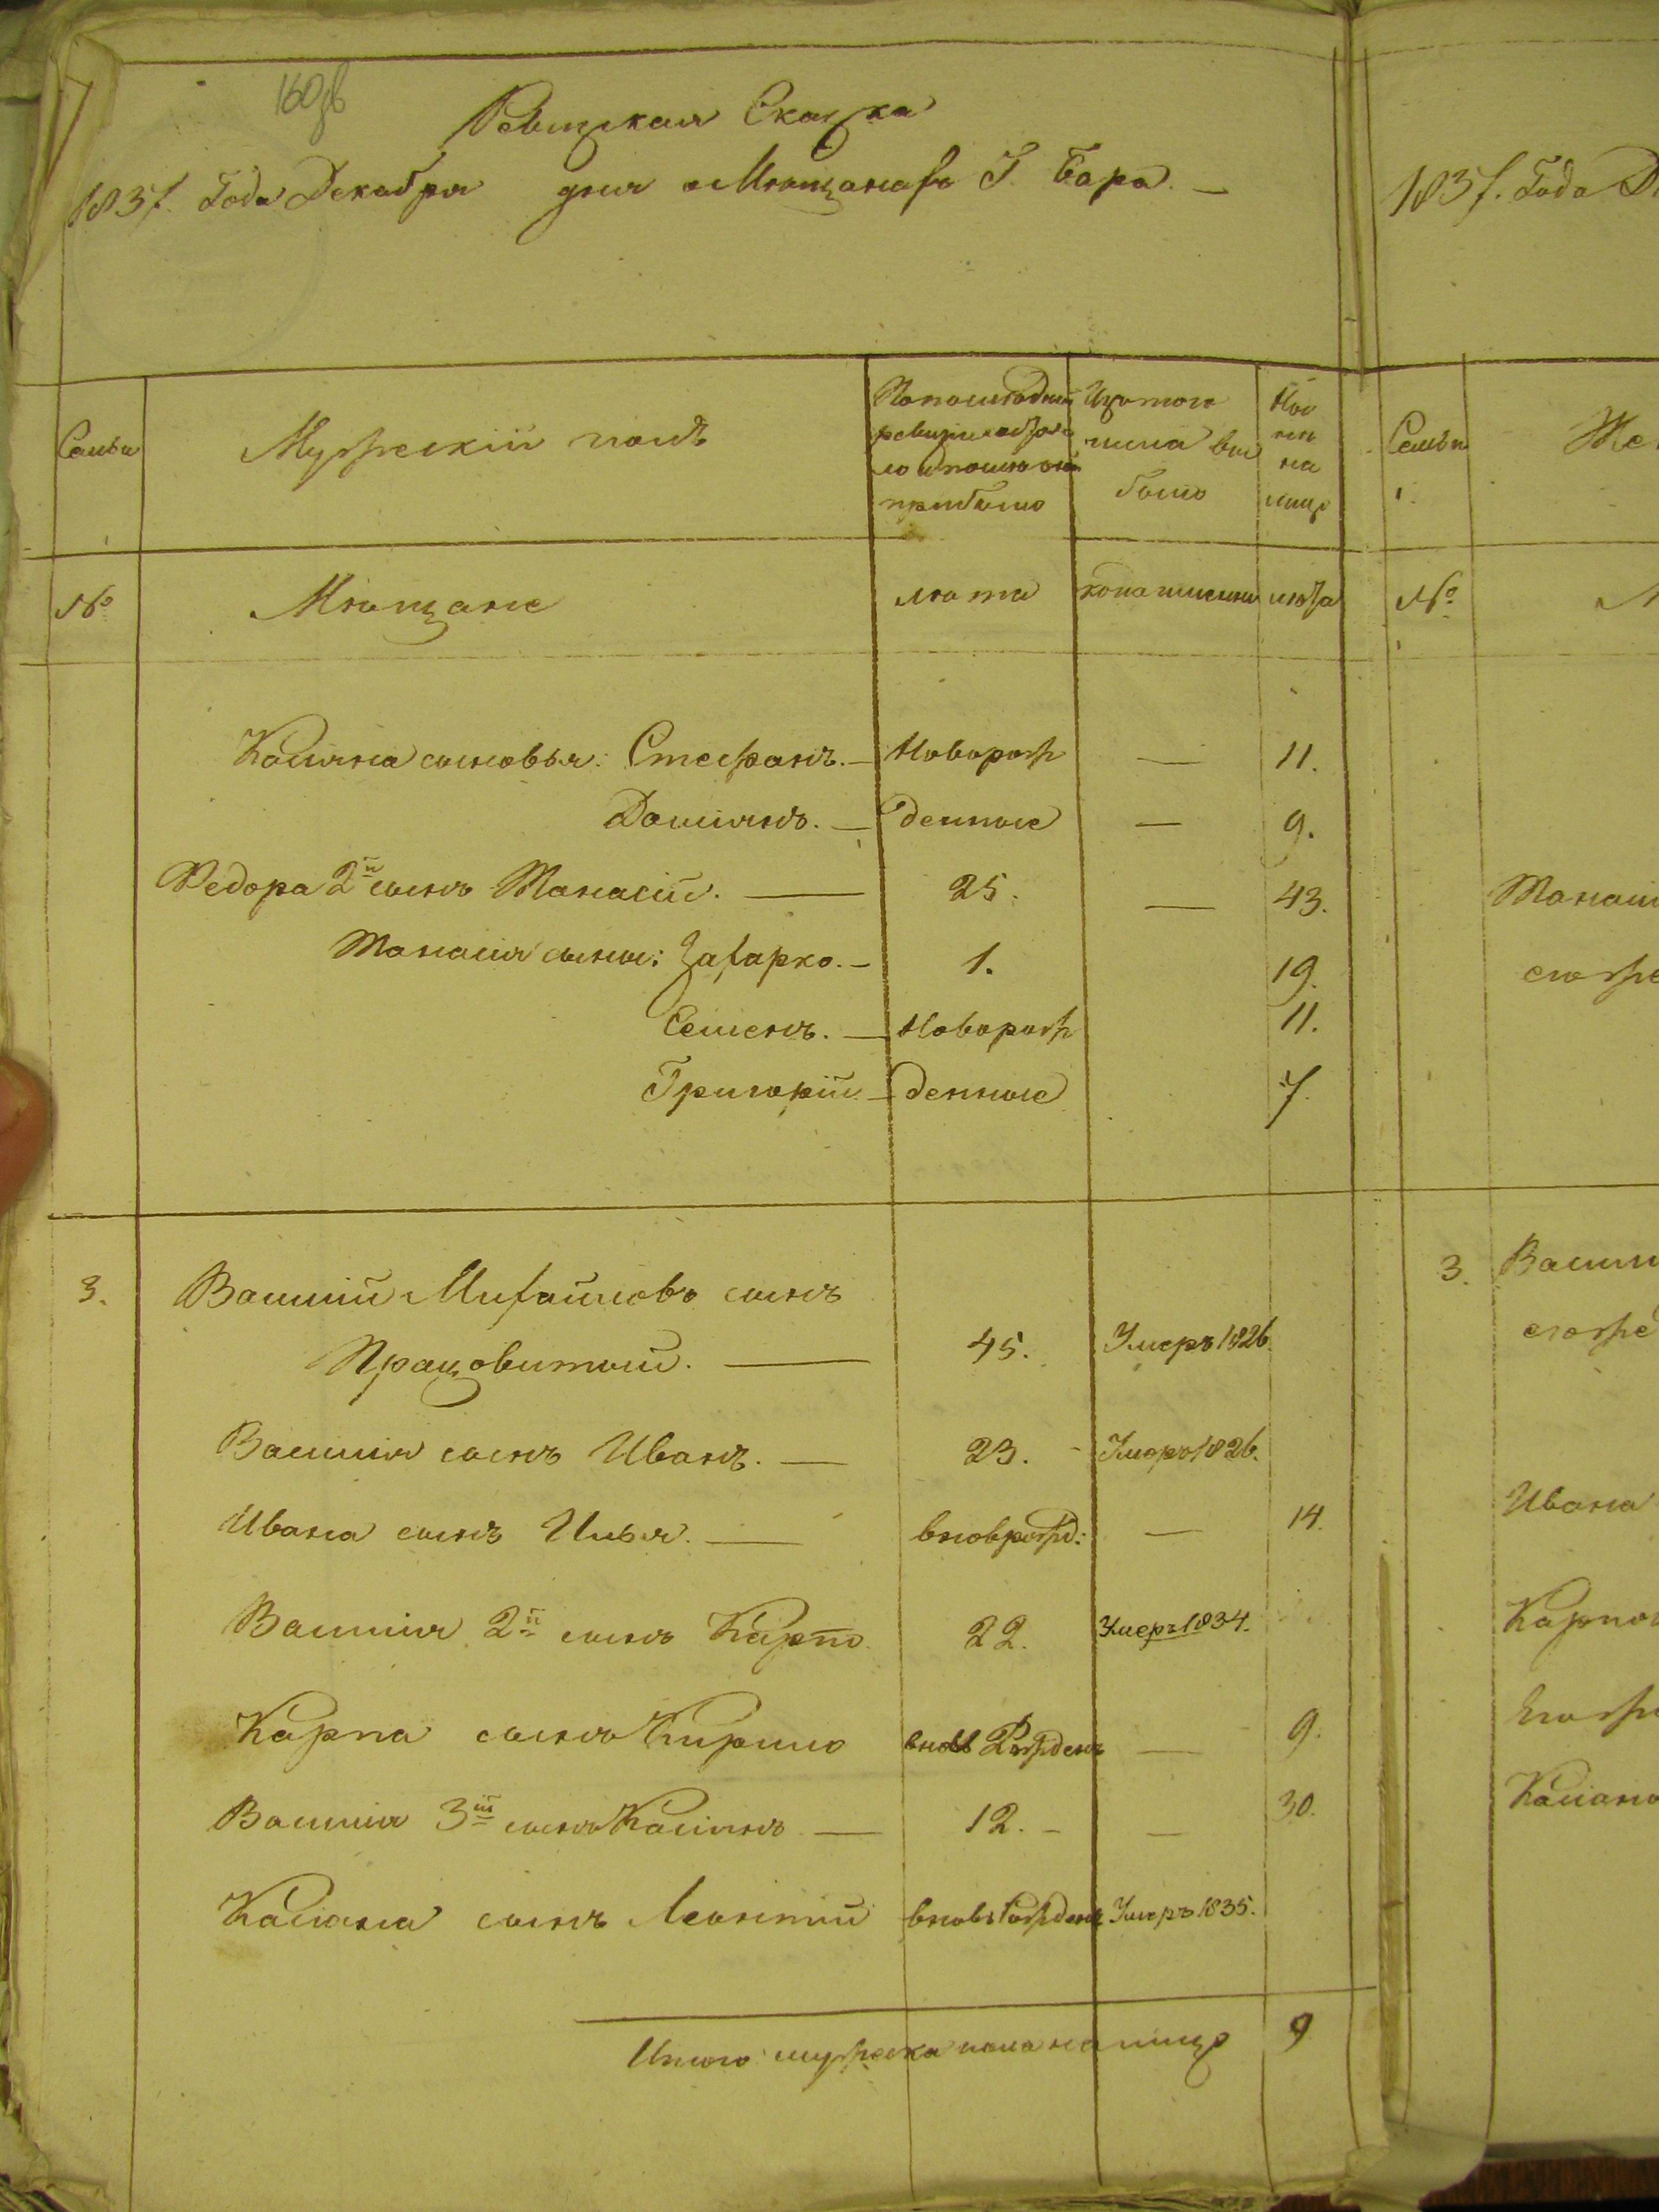 160 зв
Ревизская Сказка
1837. Года Декабря дня о Мѣщанахъ Г. Бара. —
1837. Года Д
Семьи
Мужескій полъ
По последней ревизіи состояло и после оной прибыло
Изъ того числа выбыло
Ныне на лицо
Семьи
Же
№
Мѣщане
лѣта
когда именно
лѣта
№
М
Касіяна сыновья: Стефанъ. — Новорож — 11.
Даміянъ. — денные — 9.
Федора 2й сынъ Манасій. — 25. — 43.
Манасія сыны: Захарко. — 1. 19.
Семенъ. — Новорож 11.
Григорій — денные 7.
Манаси
егоже
3. Василій Михайловъ сынъ
Працовитый. — 45. Умеръ 1826.
Василія сынъ Иванъ. — 23. Умеръ 1826.
Ивана сынъ Илья. — вновьрожд: — 14.
Василія 2й сынъ Карпо 22. Умеръ 1834.
Карпа сынъ Кирило вновь Рожденъ — 9.
Василія 3й сынъ Касіянъ — 12. — — 30.
Касіана сынъ Леонтий вновь Рожденъ Умеръ 1835.
Итого мужеска пола на лицо 9
3. Васили
егоже
Ивана
Карпов
Егоже
Касіана